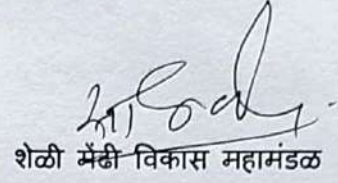 शेळी मेंढी विकास महामंडळ